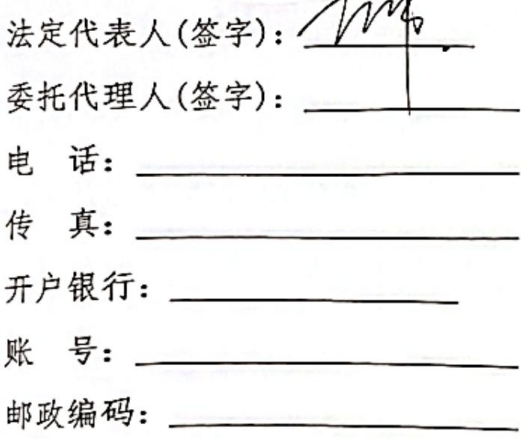 法定代表人(签字):
委托代理人(签字):
电 话:
传 真:
开户银行:
账 号:
邮政编码: